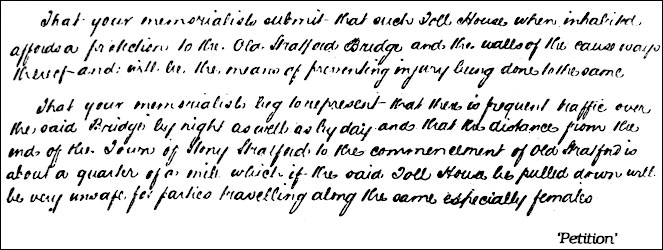 That your memorialists submit that such Toll House when inhabited
affords a protection to the Old Stratford Bridge and the walls of the causeways
thereof and will be the means of preventing injury being done to the same
That your memorialists beg to represent that there is frequent traffic over
the said Bridge by night as well as by day and that the distance from the
end of the Town of Stony Stratford to the commencement of Old Stratford is
about a quarter of a mile which if the said Toll House be pulled down will
be very unsafe for parties travelling along the same especially females
'Petition'